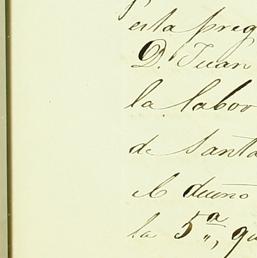 esta preg
D. Juan
la labor
de Santa
el dueño
la 5ª, qu